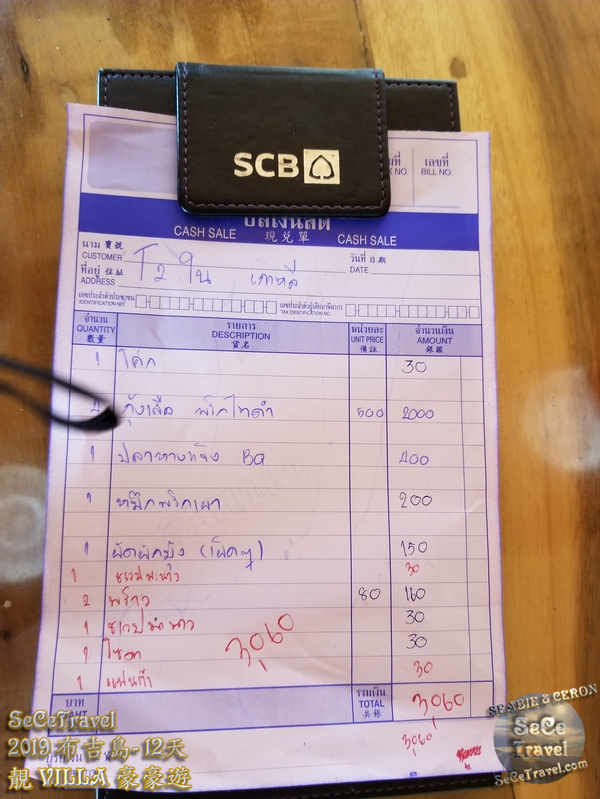 SCB
ที่ เลขที่
NO. BILL NO.
บิลเงินสด
CASH SALE 現兌單 CASH SALE
นาม 寶號
CUSTOMER
วันที่ 日期
DATE
ที่อยู่ 住址
ADDRESS
เลขประจำตัวประชาชน
IDENTIFICATION NO
เลขประจำตัวผู้เสียภาษีอากร
TAX IDENTIFICATION NO.
จำนวน รายการ หน่วยละ จำนวนเงิน
QUANTITY DESCRIPTION UNIT PRICE AMOUNT
數量 貨名 備註 銀額
1 โค้ก 30
กุ้งเสือ พริกไทดำ 500 2000
1 ปลาหางแข็ง BQ 400
1 หมึกพริกเผา 200
1 ผัดผักบุ้ง (เผ็ดๆ) 150
1 30
2 พร้าว 80 160
1 30
1 โซดา 30
1 แฟนต้า 30
3,060
บาท รวมเงิน
BAHT TOTAL 3060
共銀
3,060
SeCeTravel
2019 布吉島-12天
靚 VILLA 豪豪遊
SEABIE & CERON
SeCe
Travel
SeCeTravel.com